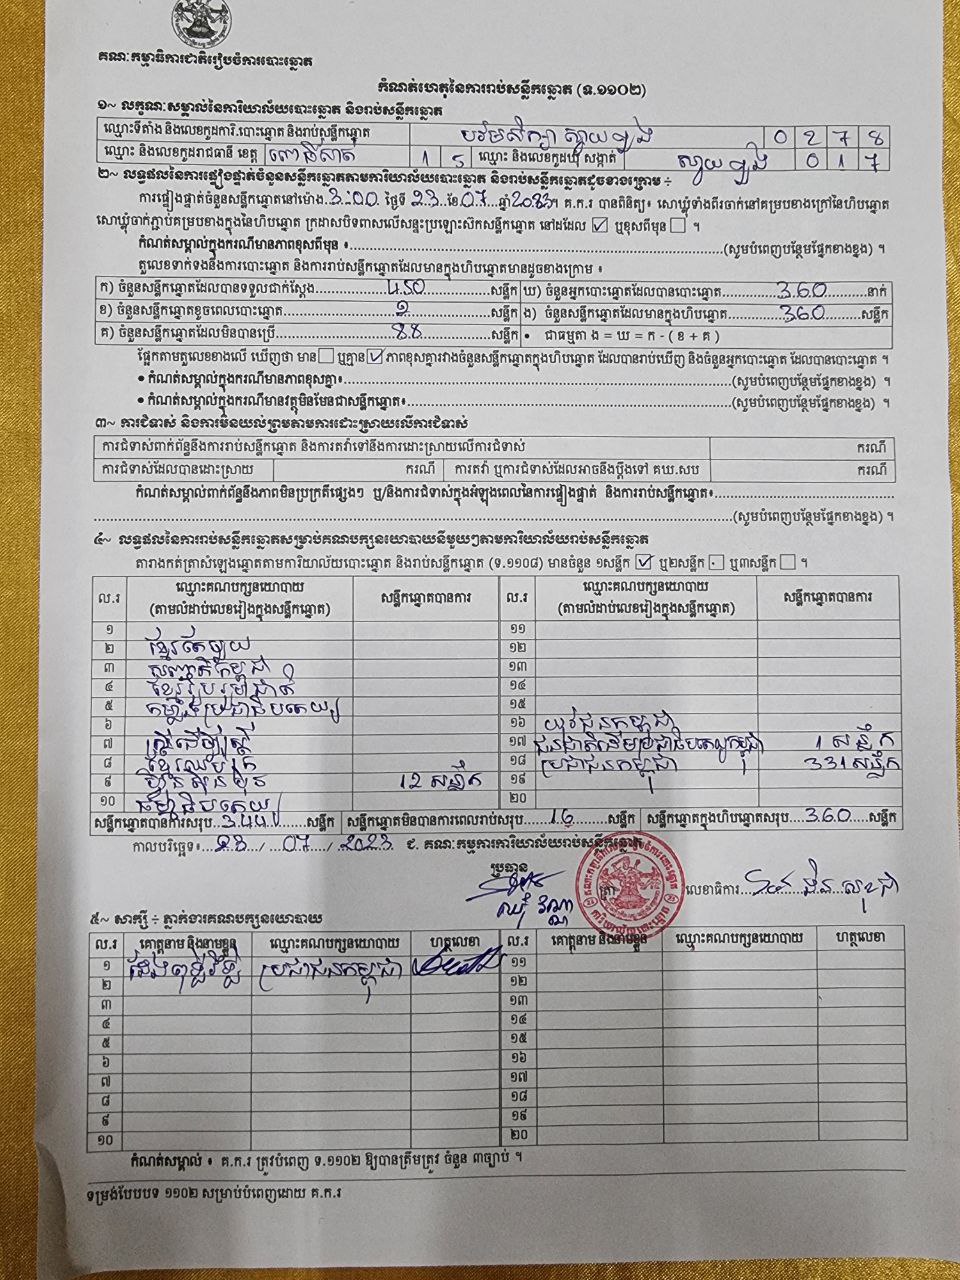 គណៈកម្មាធិការជាតិរៀបចំការបោះឆ្នោត
កំណត់ហេតុនៃការរាប់សន្លឹកឆ្នោត (ទ.១១០២)
១~ លក្ខណៈសម្គាល់នៃការិយាល័យបោះឆ្នោត និងរាប់សន្លឹកឆ្នោត
ឈ្មោះទីតាំង និងលេខកូដការិ.បោះឆ្នោត និងរាប់សន្លឹកឆ្នោត 0 2 7 8
ឈ្មោះ និងលេខកូដរាជធានី ខេត្ត ពោធិ៍សាត់ 1 5 ឈ្មោះ និងលេខកូដឃុំ សង្កាត់ 0 1 7
២~ លទ្ធផលនៃការផ្ទៀងផ្ទាត់ចំនួនសន្លឹកឆ្នោតតាមការិយាល័យបោះឆ្នោត និងរាប់សន្លឹកឆ្នោតដូចខាងក្រោម ÷
ការផ្ទៀងផ្ទាត់ចំនួនសន្លឹកឆ្នោតនៅម៉ោង 3:00 ថ្ងៃទី 23 ខែ 07 ឆ្នាំ 2023។ គ.ក.រ បានពិនិត្យ៖ សោឃ្លុំទាំងពីរចាក់នៅគម្របខាងក្រៅនៃហិបឆ្នោត
សោឃ្លុំចាក់ភ្ជាប់គម្របខាងក្នុងនៃហិបឆ្នោត ក្រដាសបិទពាសលើសន្ទះប្រឡោះស៊កសន្លឹកឆ្នោត នៅដដែល ☑ ឬខុសពីមុន ☐ ។
កំណត់សម្គាល់ក្នុងករណីមានភាពខុសពីមុន ៖ (សូមបំពេញបន្ថែមផ្នែកខាងខ្នង) ។
តួលេខទាក់ទងនឹងការបោះឆ្នោត និងការរាប់សន្លឹកឆ្នោតដែលមានក្នុងហិបឆ្នោតមានដូចខាងក្រោម ៖
ក) ចំនួនសន្លឹកឆ្នោតដែលបានទទួលជាក់ស្តែង 450 សន្លឹក ឃ) ចំនួនអ្នកបោះឆ្នោតដែលបានបោះឆ្នោត 360 នាក់
ខ) ចំនួនសន្លឹកឆ្នោតខូចពេលបោះឆ្នោត 2 សន្លឹក ង) ចំនួនសន្លឹកឆ្នោតដែលមានក្នុងហិបឆ្នោត 360 សន្លឹក
គ) ចំនួនសន្លឹកឆ្នោតដែលមិនបានប្រើ 88 សន្លឹក • ជាធម្មតា ង = ឃ = ក - ( ខ + គ )
ផ្អែកតាមតួលេខខាងលើ ឃើញថា មាន ☐ ឬគ្មាន ☑ ភាពខុសគ្នារវាងចំនួនសន្លឹកឆ្នោតក្នុងហិបឆ្នោត ដែលបានរាប់ឃើញ និងចំនួនអ្នកបោះឆ្នោត ដែលបានបោះឆ្នោត ។
• កំណត់សម្គាល់ក្នុងករណីមានភាពខុសគ្នា៖ (សូមបំពេញបន្ថែមផ្នែកខាងខ្នង) ។
• កំណត់សម្គាល់ក្នុងករណីមានវត្ថុមិនមែនជាសន្លឹកឆ្នោត៖ (សូមបំពេញបន្ថែមផ្នែកខាងខ្នង) ។
៣~ ការជំទាស់ និងការមិនយល់ព្រមតាមការដោះស្រាយលើការជំទាស់
ការជំទាស់ពាក់ព័ន្ធនឹងការរាប់សន្លឹកឆ្នោត និងការតវ៉ាទៅនឹងការដោះស្រាយលើការជំទាស់ ករណី
ការជំទាស់ដែលបានដោះស្រាយ ករណី ការតវ៉ា ឬការជំទាស់ដែលអាចនឹងប្តឹងទៅ គឃ.សប ករណី
កំណត់សម្គាល់ពាក់ព័ន្ធនឹងភាពមិនប្រក្រតីផ្សេងៗ ឬ/និងការជំទាស់ក្នុងអំឡុងពេលនៃការផ្ទៀងផ្ទាត់ និងការរាប់សន្លឹកឆ្នោត៖
(សូមបំពេញបន្ថែមផ្នែកខាងខ្នង) ។
៤~ លទ្ធផលនៃការរាប់សន្លឹកឆ្នោតសម្រាប់គណបក្សនយោបាយនីមួយៗតាមការិយាល័យរាប់សន្លឹកឆ្នោត
តារាងកត់ត្រាសំឡេងឆ្នោតតាមការិយាល័យបោះឆ្នោត និងរាប់សន្លឹកឆ្នោត (ទ.១១០៨) មានចំនួន ១សន្លឹក ☑ ឬ២សន្លឹក ☐ ឬ៣សន្លឹក ☐ ។
ល.រ ឈ្មោះគណបក្សនយោបាយ (តាមលំដាប់លេខរៀងក្នុងសន្លឹកឆ្នោត) សន្លឹកឆ្នោតបានការ ល.រ ឈ្មោះគណបក្សនយោបាយ (តាមលំដាប់លេខរៀងក្នុងសន្លឹកឆ្នោត) សន្លឹកឆ្នោតបានការ
១ ១១
២ ខ្មែរតែមួយ ១២
៣ សញ្ជាតិកម្ពុជា ១៣
៤ ខ្មែររួបរួមជាតិ ១៤
៥ កម្លាំងប្រជាធិបតេយ្យ ១៥
៦ ១៦ យុវជនកម្ពុជា
៧ ស្ត្រីដើម្បីស្ត្រី ១៧ ជនជាតិដើមប្រជាធិបតេយ្យកម្ពុជា 1 សន្លឹក
៨ ១៨ ប្រជាជនកម្ពុជា 331 សន្លឹក
៩ ហ្វ៊ុនស៊ិនប៉ិច 12 សន្លឹក ១៩
១០ ធម្មាធិបតេយ្យ ២០
សន្លឹកឆ្នោតបានការសរុប 344 សន្លឹក សន្លឹកឆ្នោតមិនបានការពេលរាប់សរុប 16 សន្លឹក សន្លឹកឆ្នោតក្នុងហិបឆ្នោតសរុប 360 សន្លឹក
កាលបរិច្ឆេទ៖ 23 / 07 / 2023 ៩. គណៈកម្មការការិយាល័យរាប់សន្លឹកឆ្នោត
ប្រធាន ត្រា លេខាធិការ
៥~ សាក្សី ÷ ភ្នាក់ងារគណបក្សនយោបាយ
ល.រ គោត្តនាម និងនាមខ្លួន ឈ្មោះគណបក្សនយោបាយ ហត្ថលេខា ល.រ គោត្តនាម និងនាមខ្លួន ឈ្មោះគណបក្សនយោបាយ ហត្ថលេខា
១ ប្រជាជនកម្ពុជា ១១
២ ១២
៣ ១៣
៤ ១៤
៥ ១៥
៦ ១៦
៧ ១៧
៨ ១៨
៩ ១៩
១០ ២០
កំណត់សម្គាល់ ៖ គ.ក.រ ត្រូវបំពេញ ទ.១១០២ ឱ្យបានត្រឹមត្រូវ ចំនួន ៣ច្បាប់ ។
ទម្រង់បែបបទ ១១០២ សម្រាប់បំពេញដោយ គ.ក.រ